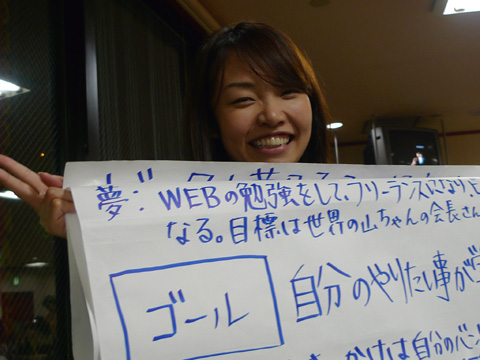 夢:WEBの勉強をして、フリーランスになり、
なる。目標は世界の山ちゃんの会長さん
ゴール
自分のやりたい事が
かけは自分の